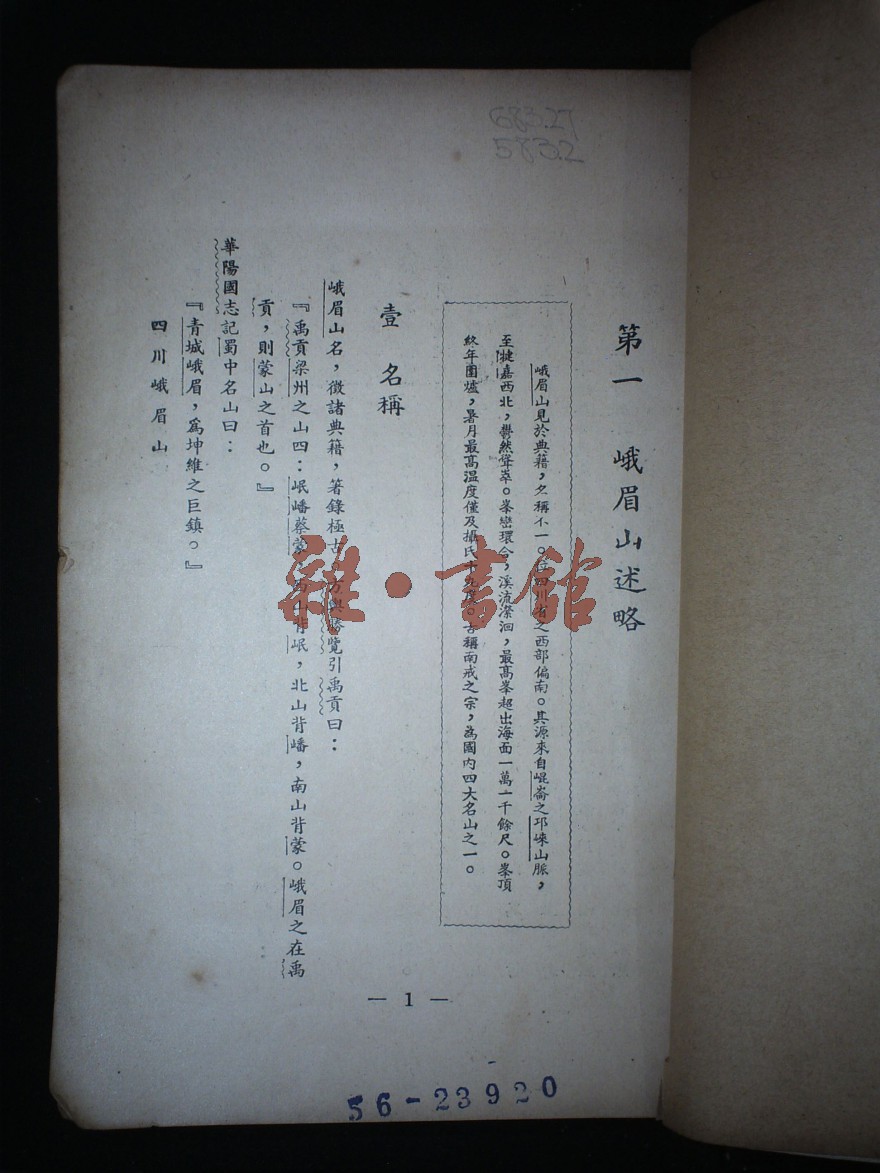 683.27
583.2
第一 峨眉山述略
峨眉山見於典籍，名稱不一。位四川省之西部偏南。其源來自崐崙之邛崍山脈，
至犍嘉西北，鬱然聳萃。峯巒環合，溪流瀠洄，最高峯超出海面一萬一千餘尺。峯頂
終年圍爐，暑月最高溫度僅及攝氏十九度。古稱南戒之宗，為國內四大名山之一。
壹 名稱
峨眉山名，徵諸典籍，著錄極古，方輿勝覽引禹貢曰：
『禹貢梁州之山四：岷嶓蔡蒙，西山背岷，北山背嶓，南山背蒙。峨眉之在禹
貢，則蒙山之首也。』
華陽國志記蜀中名山曰：
『青城峨眉，爲坤維之巨鎮。』
四川峨眉山
— 1 —
56-23920
雜·書館